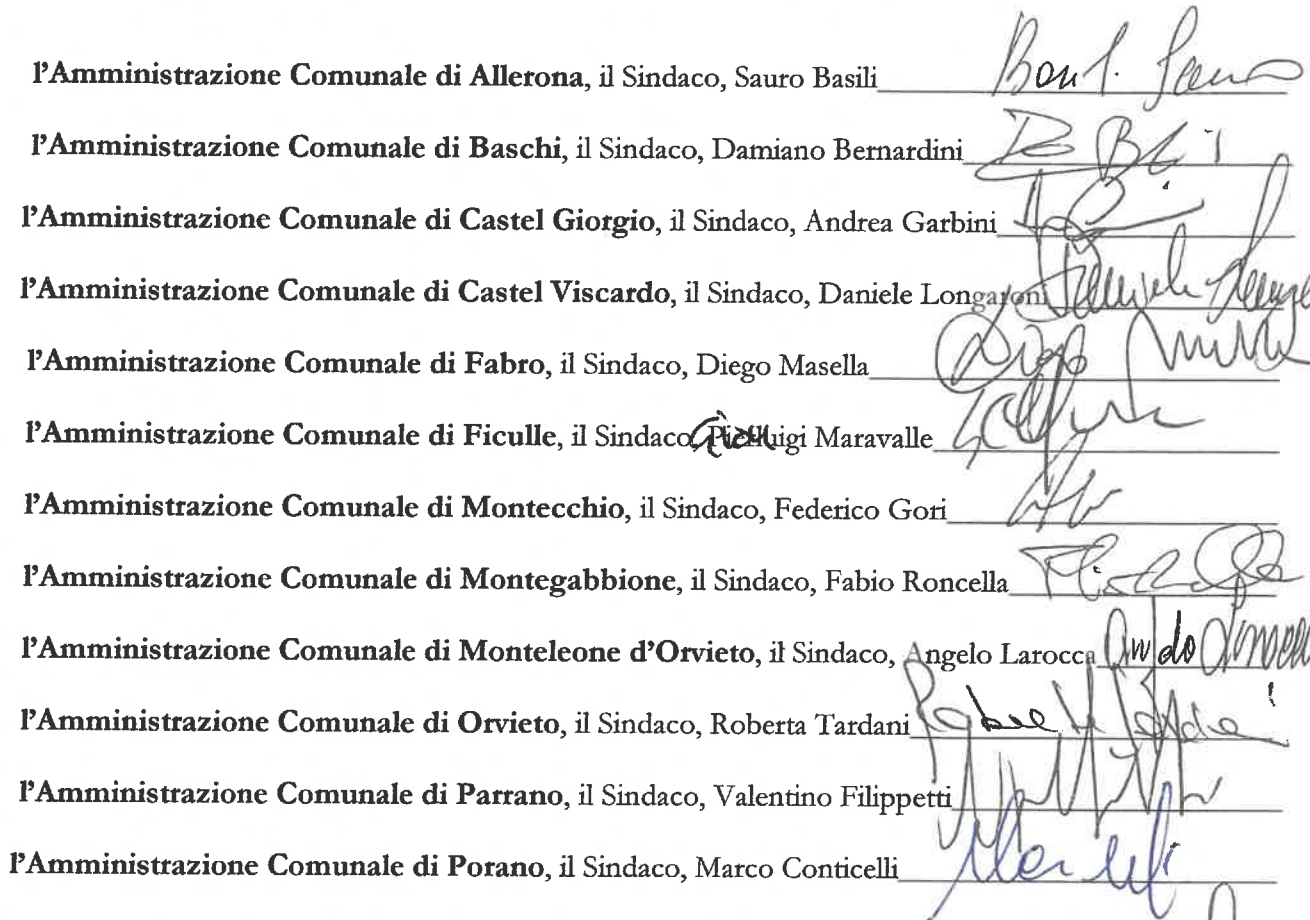 l'Amministrazione Comunale di Allerona, il Sindaco, Sauro Basili
l'Amministrazione Comunale di Baschi, il Sindaco, Damiano Bernardini
l'Amministrazione Comunale di Castel Giorgio, il Sindaco, Andrea Garbini
l'Amministrazione Comunale di Castel Viscardo, il Sindaco, Daniele Longaroni
l'Amministrazione Comunale di Fabro, il Sindaco, Diego Masella
l'Amministrazione Comunale di Ficulle, il Sindaco, Gianluigi Maravalle
l'Amministrazione Comunale di Montecchio, il Sindaco, Federico Gori
l'Amministrazione Comunale di Montegabbione, il Sindaco, Fabio Roncella
l'Amministrazione Comunale di Monteleone d'Orvieto, il Sindaco, Angelo Larocca
l'Amministrazione Comunale di Orvieto, il Sindaco, Roberta Tardani
l'Amministrazione Comunale di Parrano, il Sindaco, Valentino Filippetti
l'Amministrazione Comunale di Porano, il Sindaco, Marco Conticelli